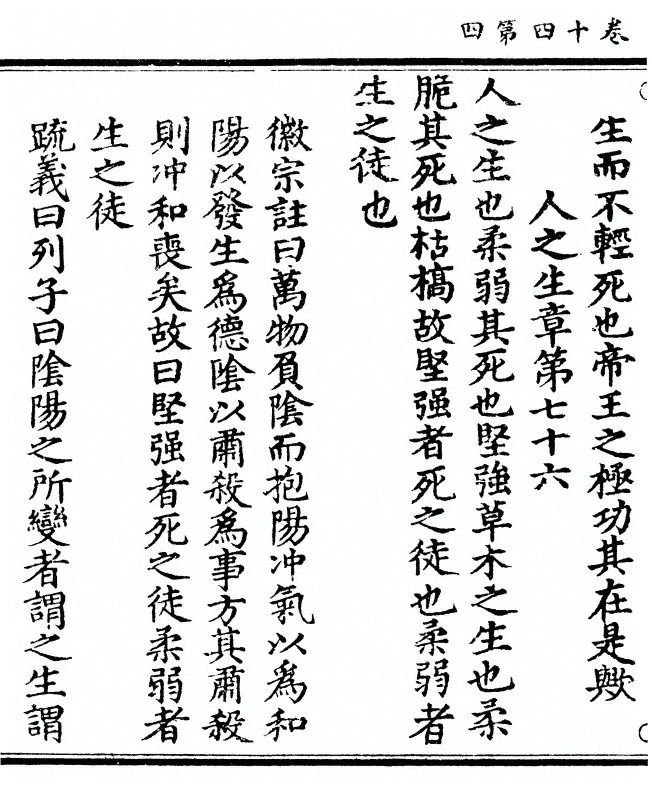 卷十四第四
生而不輕死也帝王之極功其在是歟
人之生章第七十六
人之生也柔弱其死也堅強草木之生也柔
脆其死也枯槁故堅强者死之徒也柔弱者
生之徒也
徽宗註曰萬物負陰而抱陽冲氣以爲和
陽以發生爲德陰以肅殺爲事方其肅殺
則冲和喪矣故曰堅强者死之徒柔弱者
生之徒
疏義曰列子曰陰陽之所變者謂之生謂